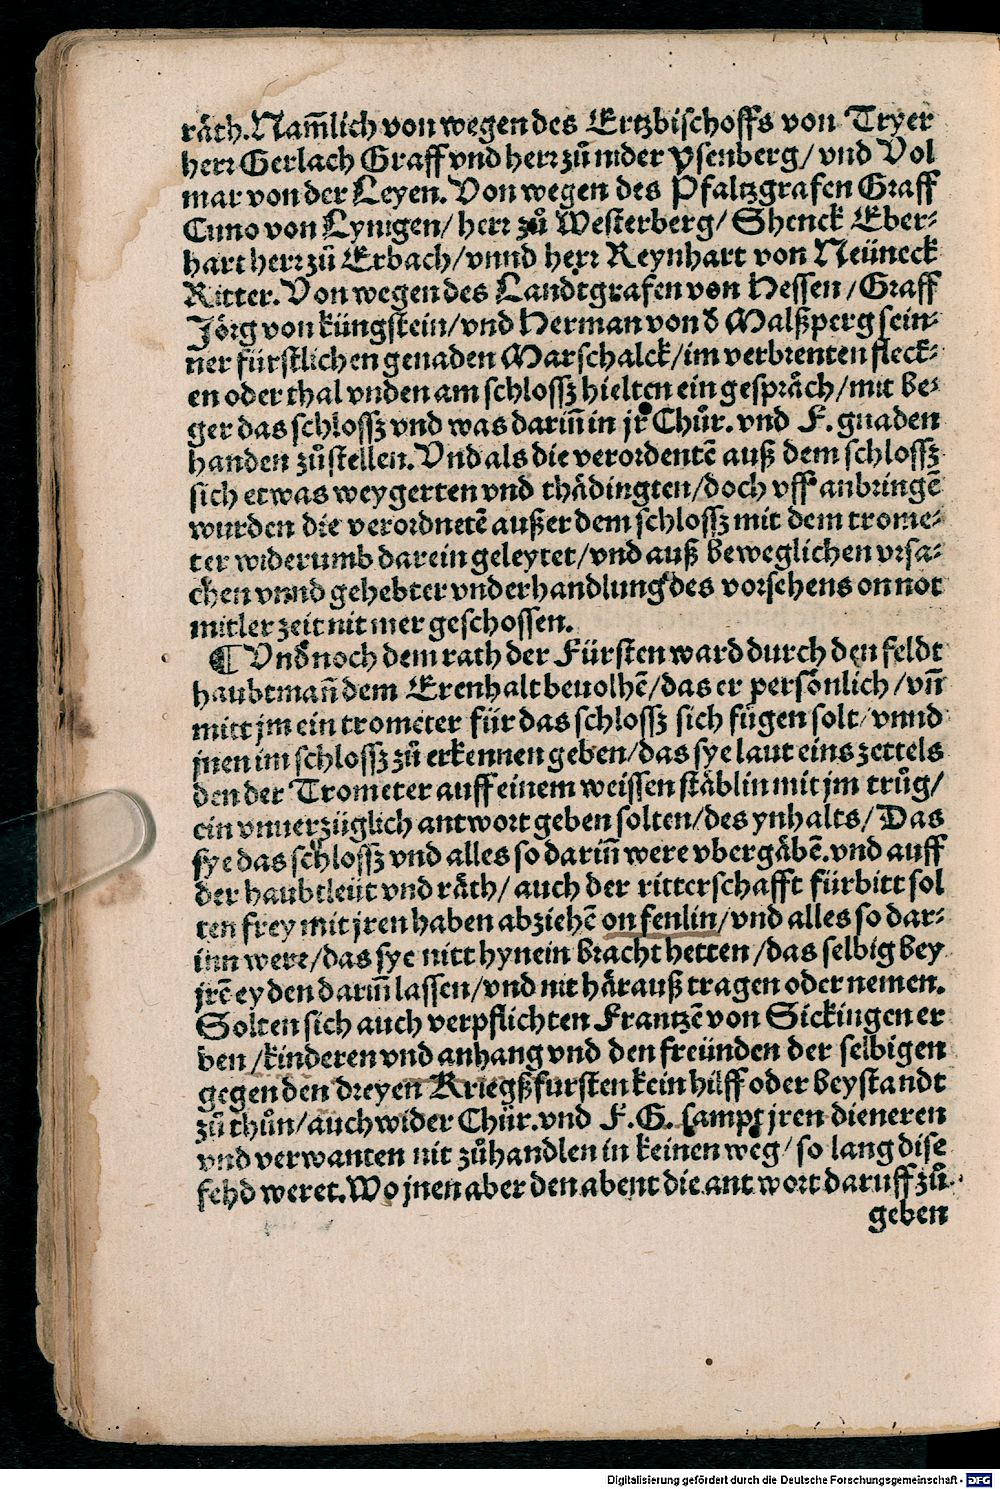 räth. Nam̃lich von wegen des Ertzbischoffs von Tryer
herr Gerlach Graff vnd herr zů nider ysenberg/ vnd Vol
mar von der Leyen. Von wegen des Pfaltzgrafen Graff
Cuno von Lynigen/ herr zů Westerberg/ Shenck Eber⸗
hart herr zů Erbach/ vnnd herr Reynhart von Neüneck
Ritter. Von wegen des Landtgrafen von Hessen/ Graff
Jörg von küngstein/ vnd Herman von d Malßperg sein⸗
ner fürstlichen genaden Marschalck/ im verbrenten fleck⸗
en oder thal vnden am schlossz hielten ein gespräch/ mit be⸗
ger das schlossz vnd was dariñ in jr Chůr. vnd F. gnaden
handen zů stellen. Vnd als die verordentē auß dem schlossz
sich etwas weygerten vnd thädingten/ doch vff anbringē
wurden die verordnetē außer dem schlossz mit dem trome⸗
ter widerumb darein geleytet/ vnd auß beweglichen vrsa⸗
chen vnnd gehebter vnderhandlung des vorsehens on not
mitler zeit nit mer geschossen.
¶ Vnd noch dem rath der Fürsten ward durch den feldt
haubtmañ dem Erenhalt beuolhē/ das er persönlich/ vñ
mitt jm ein trometer für das schlossz sich fügen solt/ vnnd
jnen im schlossz zů erkennen geben/ das sye laut eins zettels
den der Trometer auff einem weissen stäblin mit jm trůg/
ein vnuerzüglich antwort geben solten/ des ynhalts/ Das
sye das schlossz vnd alles so dariñ were vbergäbē. vnd auff
der haubtleüt vnd räth/ auch der ritterschafft fürbitt sol
ten frey mit jren haben abziehē on fenlin/ vnd alles so dar⸗
inn were/ das sye nitt hynein bracht hetten/ das selbig bey
jrē eyden dariñ lassen/ vnd nit härauß tragen oder nemen.
Solten sich auch verpflichten Frantzē von Sickingen er
ben/ kinderen vnd anhang vnd den freünden der selbigen
gegen den dreyen Kriegßfursten kein hilff oder beystandt
zů thůn/ auch wider Chür. vnd F. G. sampt jren dieneren
vnd verwanten nit zůhandlen in keinen weg/ so lang dise
fehd weret. Wo jnen aber den abent die antwort daruff zů
geben
Digitalisierung gefördert durch die Deutsche Forschungsgemeinschaft - DFG